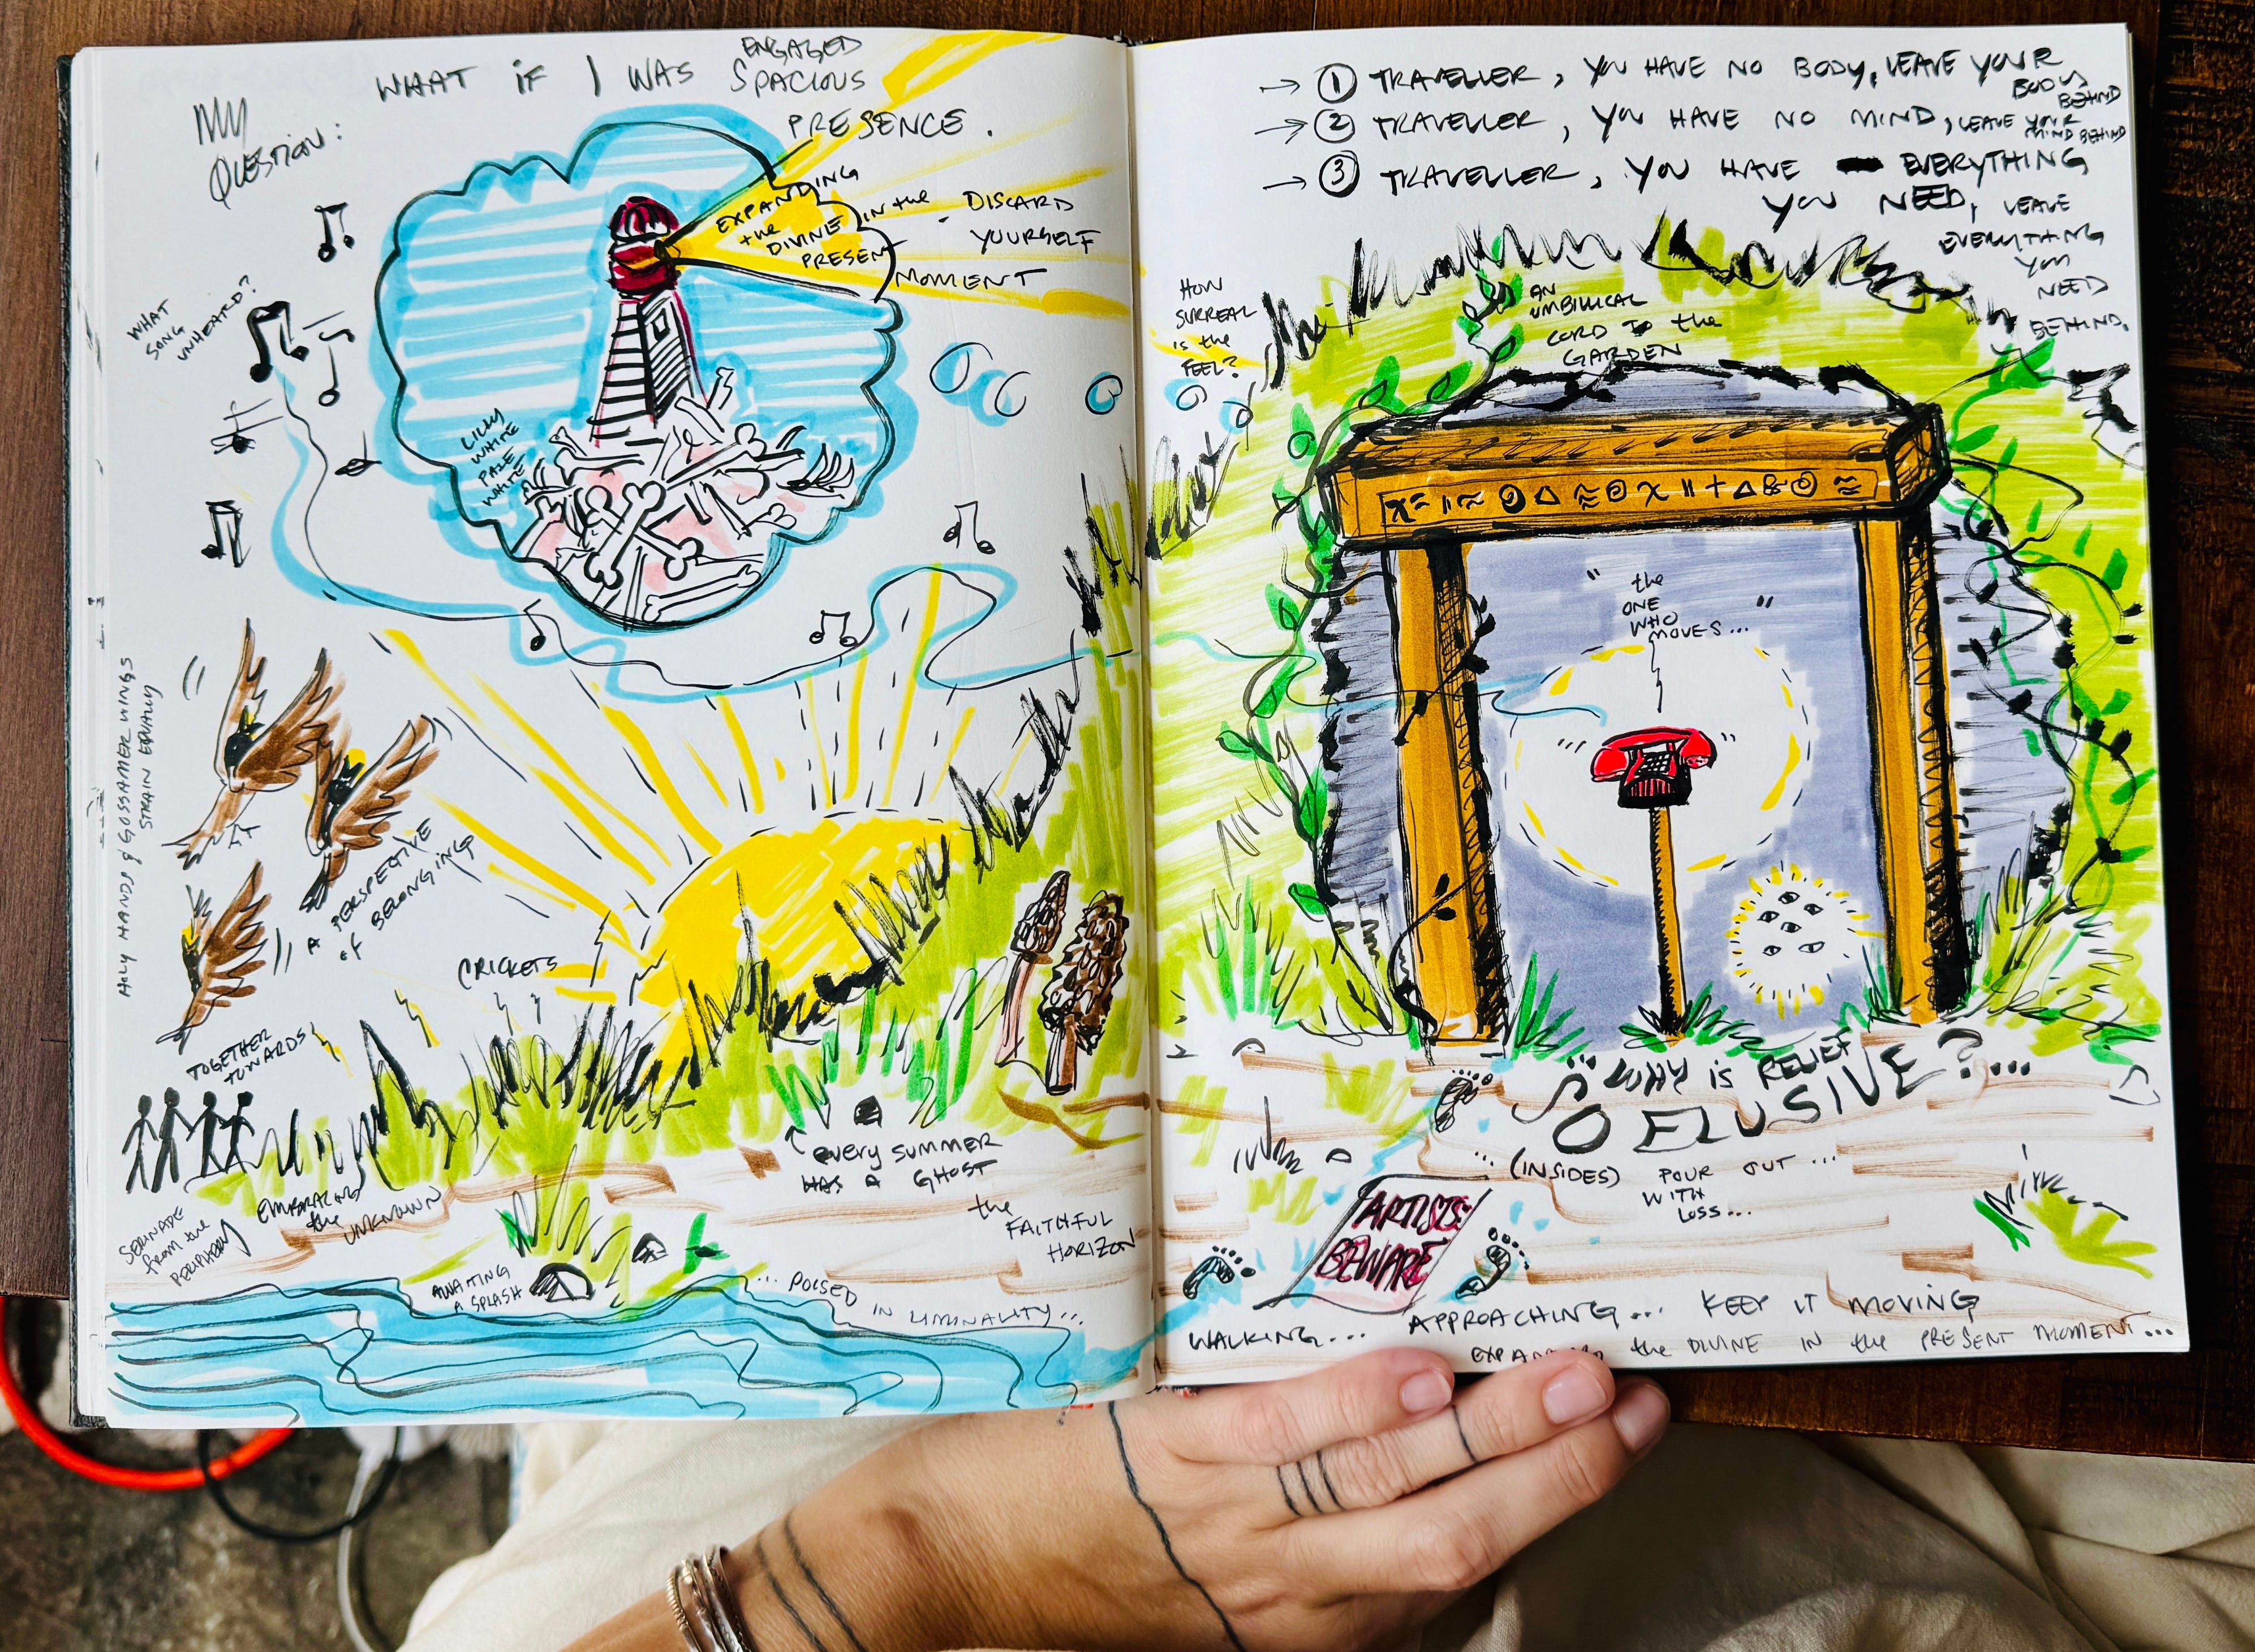 MY
QUESTION:
WHAT IF I WAS SPACIOUS
ENGAGED
PRESENCE.
EXPANDING
the DIVINE IN the
PRESENT MOMENT
DISCARD
YOURSELF
WHAT
SONG
UNHEARD?
LILLY
WHITE
PALE
WHITE
HOLY HANDS & GOSSAMER WINGS
STRAIN EQUALLY
A PERSPECTIVE
OF BELONGING
CRICKETS
TOGETHER
TOWARDS
EMBRACING
the UNKNOWN
SERNADE
from the
PERIPHERY
every SUMMER
HAS A GHOST
the
FAITHFUL
HORIZON
AWAITING
A SPLASH
... POISED
IN LIMINALITY...
→ 1 TRAVELLER, YOU HAVE NO BODY, LEAVE YOUR
BODY
BEHIND
→ 2 TRAVELLER, YOU HAVE NO MIND, LEAVE YOUR
MIND BEHIND
→ 3 TRAVELLER, YOU HAVE EVERYTHING
YOU NEED, LEAVE
EVERYTHING
YOU
NEED
BEHIND.
HOW
SURREAL
is the
FEEL?
AN
UMBILLICAL
CORD TO the
GARDEN
" the
ONE
WHO
MOVES... "
"WHY IS RELIEF
SO ELUSIVE?...
... (INSIDES) POUR OUT ...
WITH
LOSS...
ARTISTS:
BEWARE
WALKING... APPROACHING... KEEP IT MOVING
the DIVINE IN the PRESENT MOMENT...